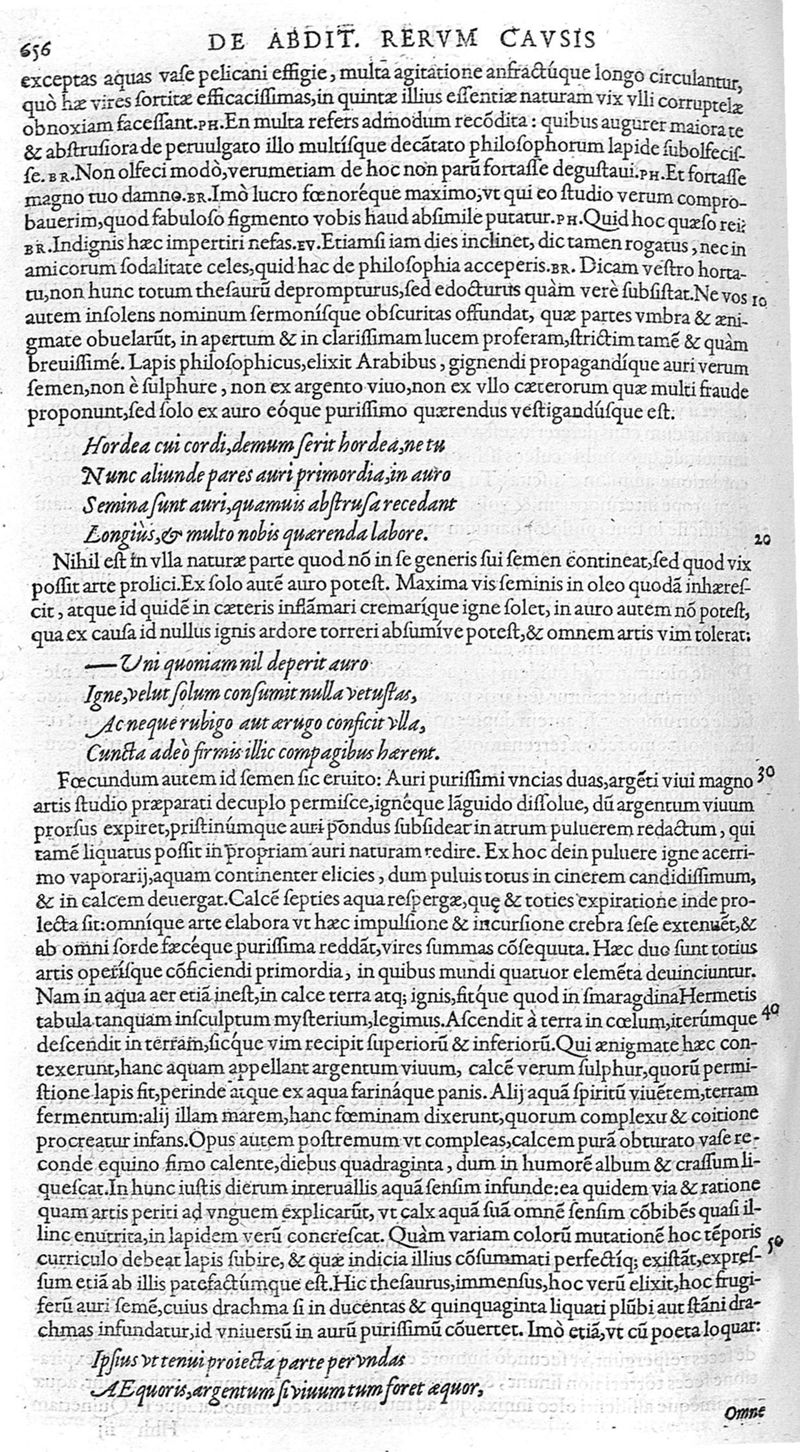 656 DE ABDIT. RERVM CAVSIS
exceptas aquas vaſe pelicani effigie, multa agitatione anfractúque longo circulantur,
quò hæ vires ſortitæ efficaciſſimas,in quintæ illius eſſentiæ naturam vix vlli corruptelæ
obnoxiam faceſſant.PH.En multa refers admodum recōdita : quibus augurer maiora te
& abſtruſiora de peruulgato illo multíſque decātato philoſophorum lapide ſubolfeciſ-
ſe.BR.Non olfeci modò,verumetiam de hoc non parū fortaſſe deguſtaui.PH.Et fortaſſe
magno tuo damno.BR.Imò lucro fœnoréque maximo,vt qui eo ſtudio verum compro-
bauerim,quod fabuloſo figmento vobis haud abſimile putatur.PH.Quid hoc quæſo rei?
BR.Indignis hæc impertiri nefas.EV.Etiamſi iam dies inclinet, dic tamen rogatus, nec in
amicorum ſodalitate celes,quid hac de philoſophia acceperis.BR. Dicam veſtro horta-
tu,non hunc totum theſaurū deprompturus,ſed edocturus quàm verè ſubſiſtat.Ne vos 10
autem inſolens nominum ſermoníſque obſcuritas offundat, quæ partes vmbra & æni-
gmate obuelarūt, in apertum & in clariſſimam lucem proferam,ſtrictim tamē & quàm
breuiſſimé. Lapis philoſophicus,elixit Arabibus, gignendi propagandíque auri verum
ſemen,non è ſulphure, non ex argento viuo,non ex vllo cæterorum quæ multi fraude
proponunt,ſed ſolo ex auro eóque puriſſimo quærendus veſtigandúſque eſt.
Hordea cui cordi,demum ſerit hordea,ne tu
Nunc aliunde pares auri primordia,in auro
Semina ſunt auri,quamuis abſtruſa recedant
Longiùs,& multo nobis quærenda labore. 20
Nihil eſt in vlla naturæ parte quod nō in ſe generis ſui ſemen contineat,ſed quod vix
poſſit arte prolici.Ex ſolo autē auro poteſt. Maxima vis ſeminis in oleo quodā inhæreſ-
cit, atque id quidē in cæteris inflāmari cremaríque igne ſolet, in auro autem nō poteſt,
qua ex cauſa id nullus ignis ardore torreri abſumíve poteſt,& omnem artis vim tolerat:
—Uni quoniam nil deperit auro
Igne,velut ſolum conſumit nulla vetuſtas,
Ac neque rubigo aut ærugo conficit vlla,
Cuncta adeò firmis illic compagibus hærent.
Fœcundum autem id ſemen ſic eruito: Auri puriſſimi vncias duas,argēti viui magno 30
artis ſtudio præparati decuplo permiſce,ignéque lāguido diſſolue, dū argentum viuum
prorſus expiret,priſtinúmque auri pondus ſubſideat in atrum puluerem redactum, qui
tamē liquatus poſſit in propriam auri naturam redire. Ex hoc dein puluere igne acerri-
mo vaporarij,aquam continenter elicies, dum puluis totus in cinerem candidiſſimum,
& in calcem deuergat.Calcē ſepties aqua reſpergæ,quę & toties expiratione inde pro-
lecta ſit:omníque arte elabora vt hæc impulſione & incurſione crebra ſeſe extenuēt,&
ab omni ſorde fæcéque puriſſima reddāt,vires ſummas cōſequuta. Hæc duo ſunt totius
artis operíſque cōficiendi primordia, in quibus mundi quatuor elemēta deuinciuntur.
Nam in aqua aer etiā ineſt,in calce terra atq; ignis,fítque quod in ſmaragdina Hermetis
tabula tanquam inſculptum myſterium,legimus.Aſcendit à terra in cœlum,iterúmque 40
deſcendit in terram,ſícque vim recipit ſuperiorū & inferiorū.Qui ænigmate hæc con-
texerunt,hanc aquam appellant argentum viuum, calcē verum ſulphur,quorū permi-
ſtione lapis fit,perinde atque ex aqua farináque panis. Alij aquā ſpiritū viuētem,terram
fermentum:alij illam marem,hanc fœminam dixerunt,quorum complexu & coitione
procreatur infans.Opus autem poſtremum vt compleas,calcem purā obturato vaſe re-
conde equino fimo calente,diebus quadraginta, dum in humorē album & craſſum li-
queſcat.In hunc iuſtis dierum interuallis aquā ſenſim infunde:ea quidem via & ratione
quam artis periti ad vnguem explicarūt, vt calx aquā ſuā omnē ſenſim cōbibēs quaſi il-
linc enutrita,in lapidem verū concreſcat. Quàm variam colorū mutationē hoc tēporis
curriculo debeat lapis ſubire, & quæ indicia illius cōſummati perfectíq; exiſtāt,expreſ- 50
ſum etiā ab illis patefactúmque eſt.Hic theſaurus,immenſus,hoc verū elixit,hoc frugi-
ferū auri ſemē,cuius drachma ſi in ducentas & quinquaginta liquati plūbi aut ſtāni dra-
chmas infundatur,id vniuersū in aurū puriſſimū cōuertet. Imò etiā,vt cū poeta loquar:
Ipſius vt tenui proiecta parte per vndas
AEquoris,argentum ſi viuum tum foret æquor,
Omne